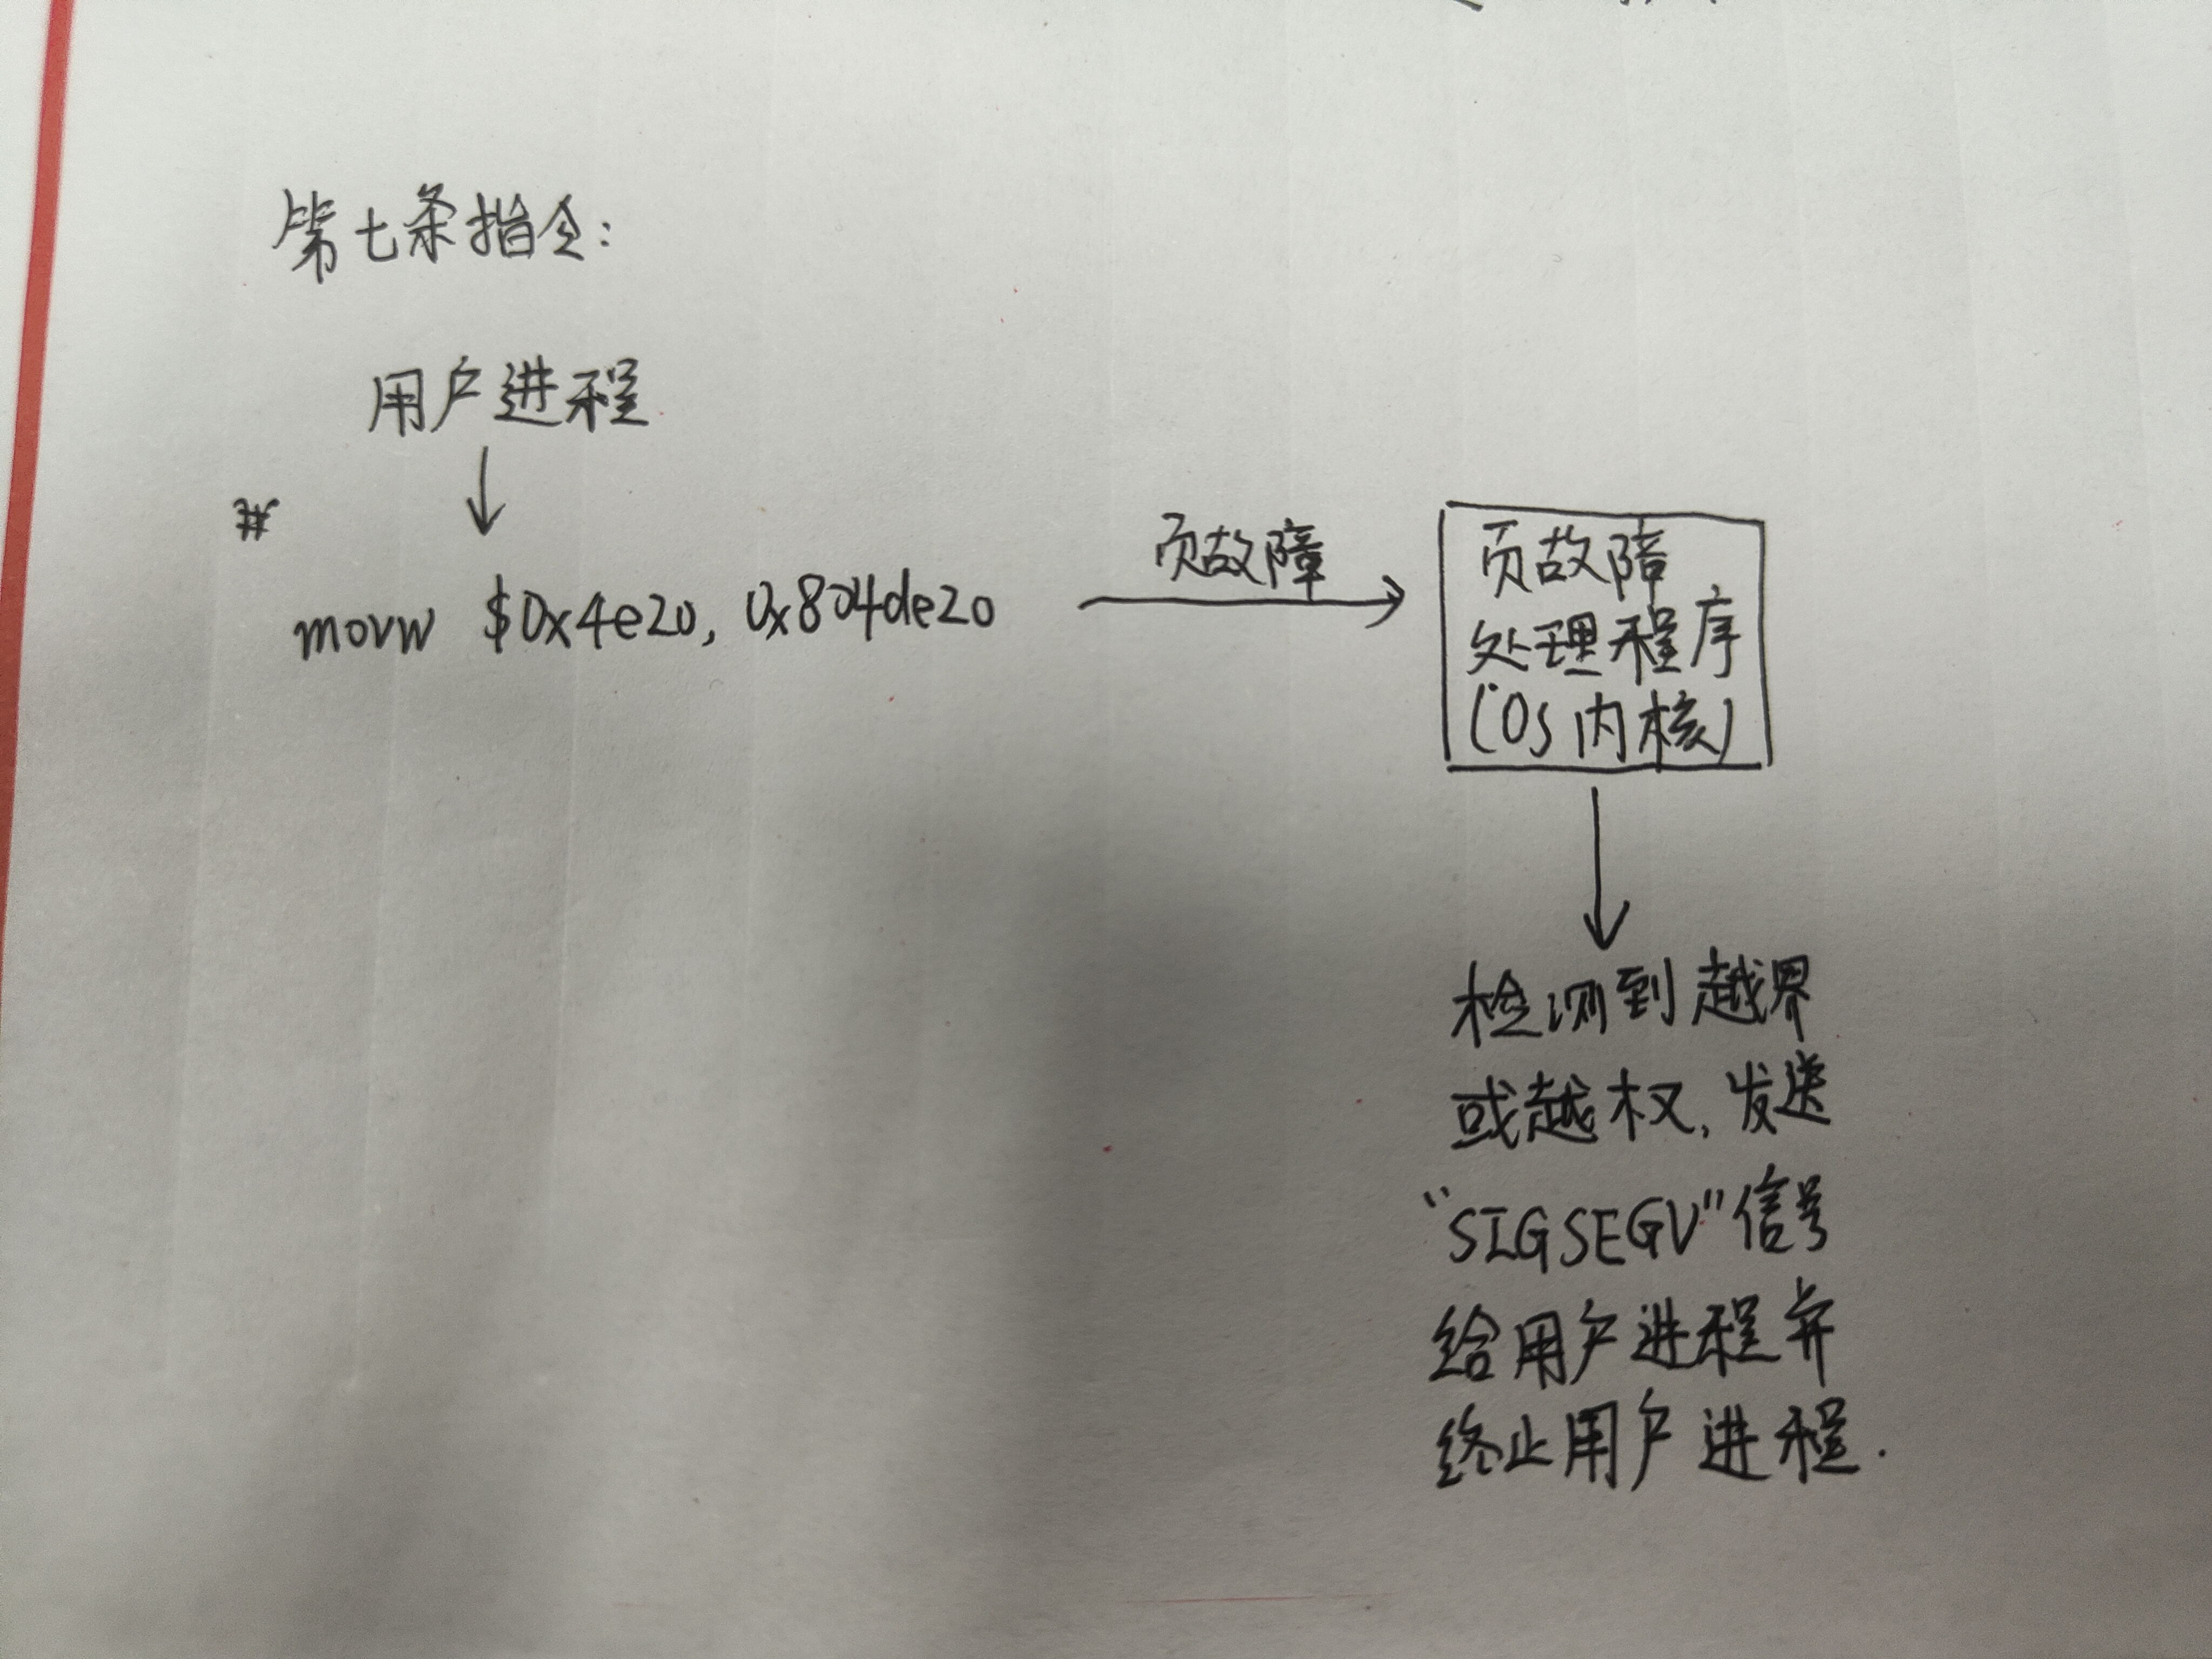 第七条指令:
用户进程
#
movw $0x4e20, 0x804de20
页故障
页故障
处理程序
(OS内核)
检测到越界
或越权, 发送
"SIGSEGV"信号
给用户进程并
终止用户进程.